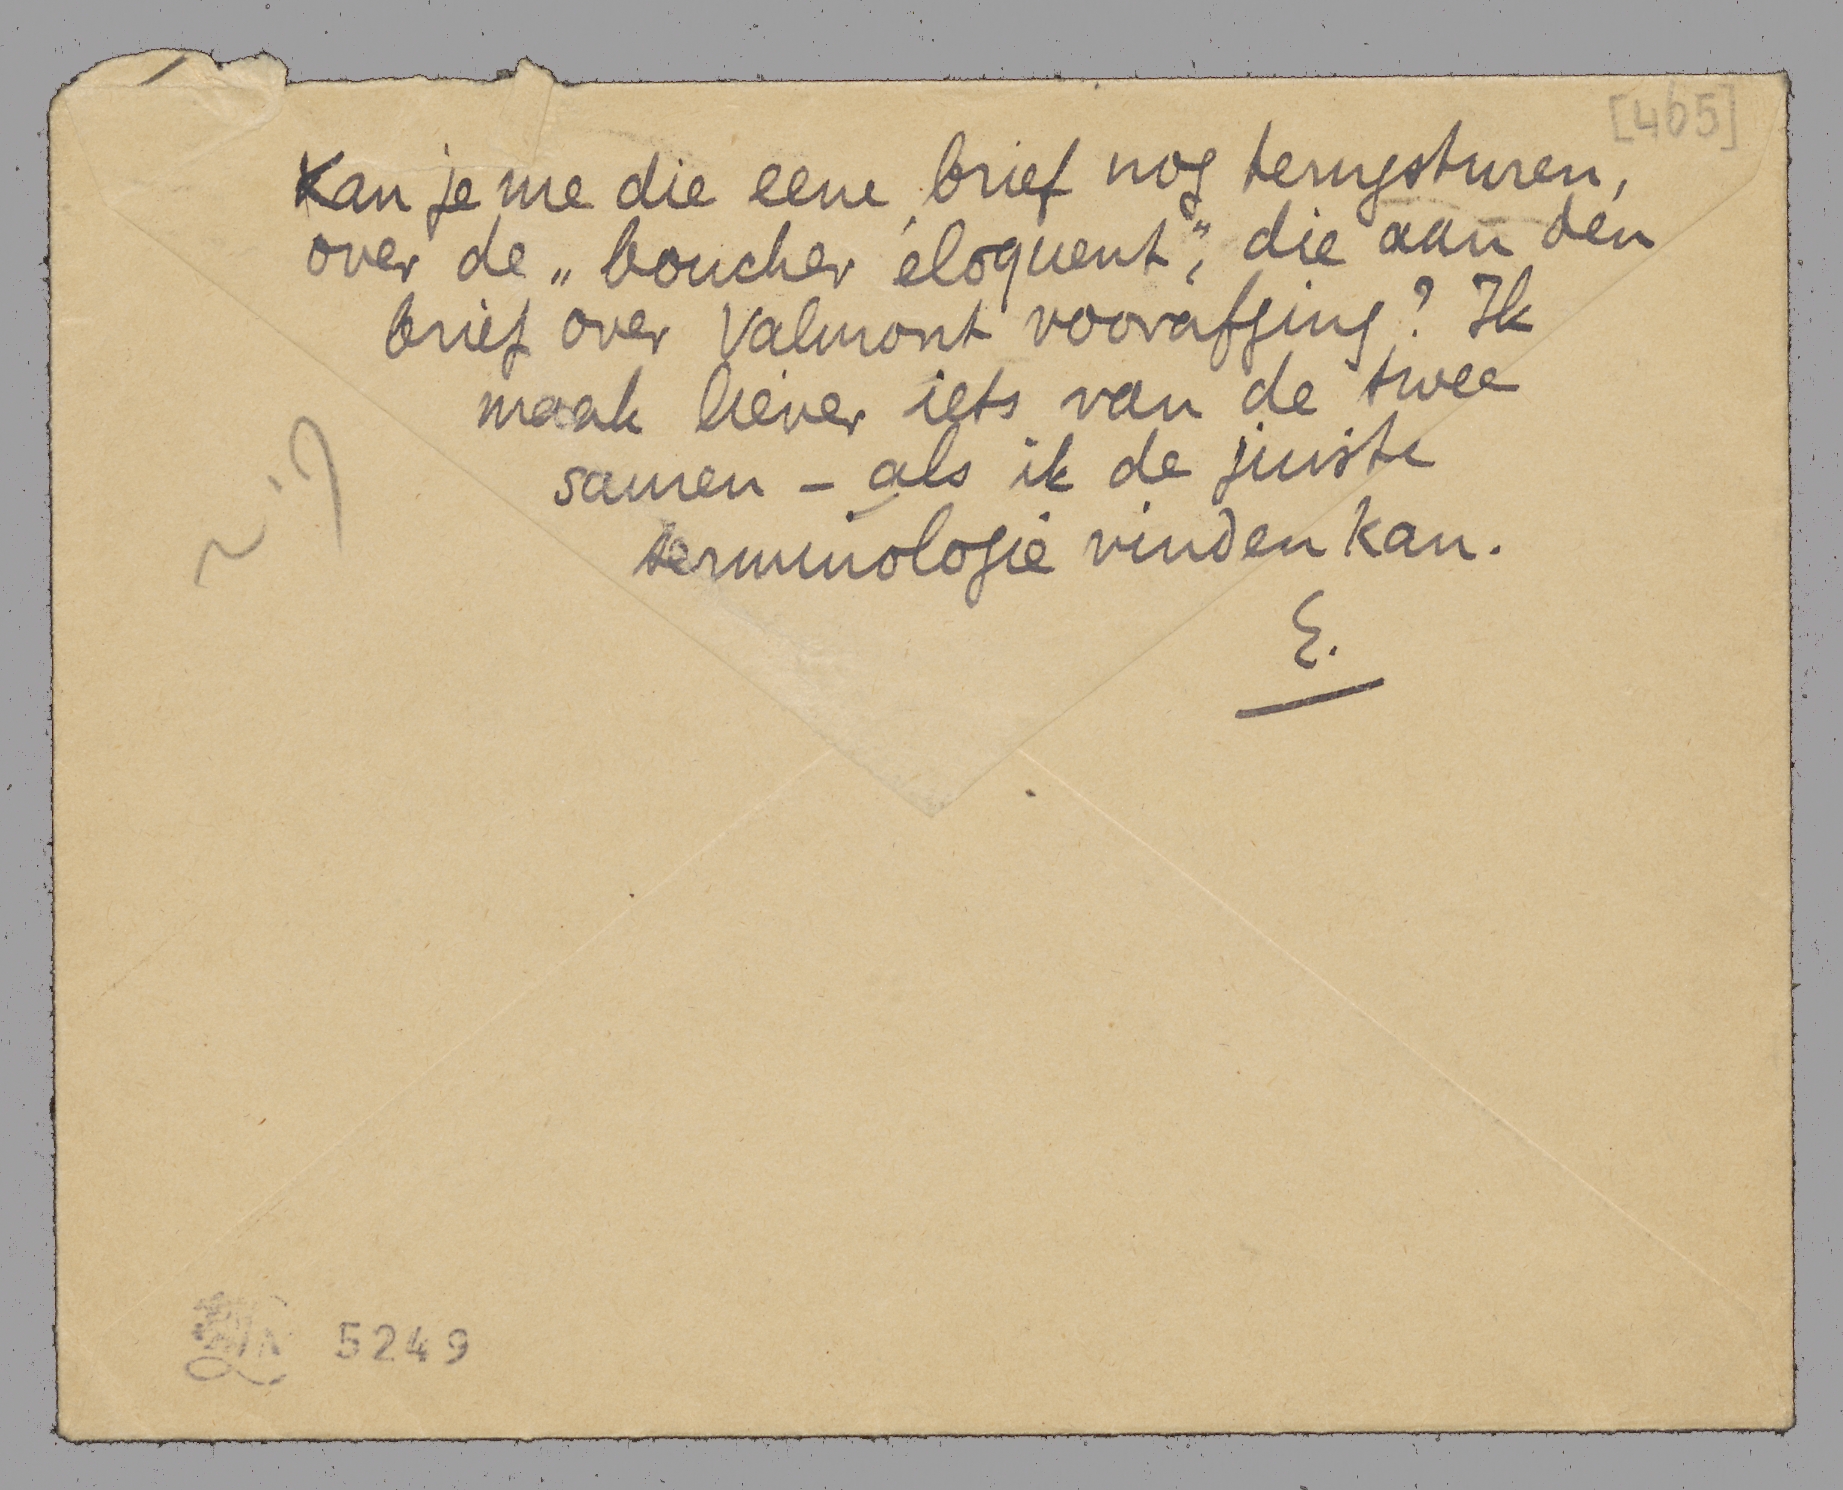 [465]
Kan je me die eene brief nog terugsturen,
over de „boucher éloquent”, die aan den
brief over Valmont voorafging? Ik
maak liever iets van de twee
samen – als ik de juiste
terminologie vinden kan.
E.
5249